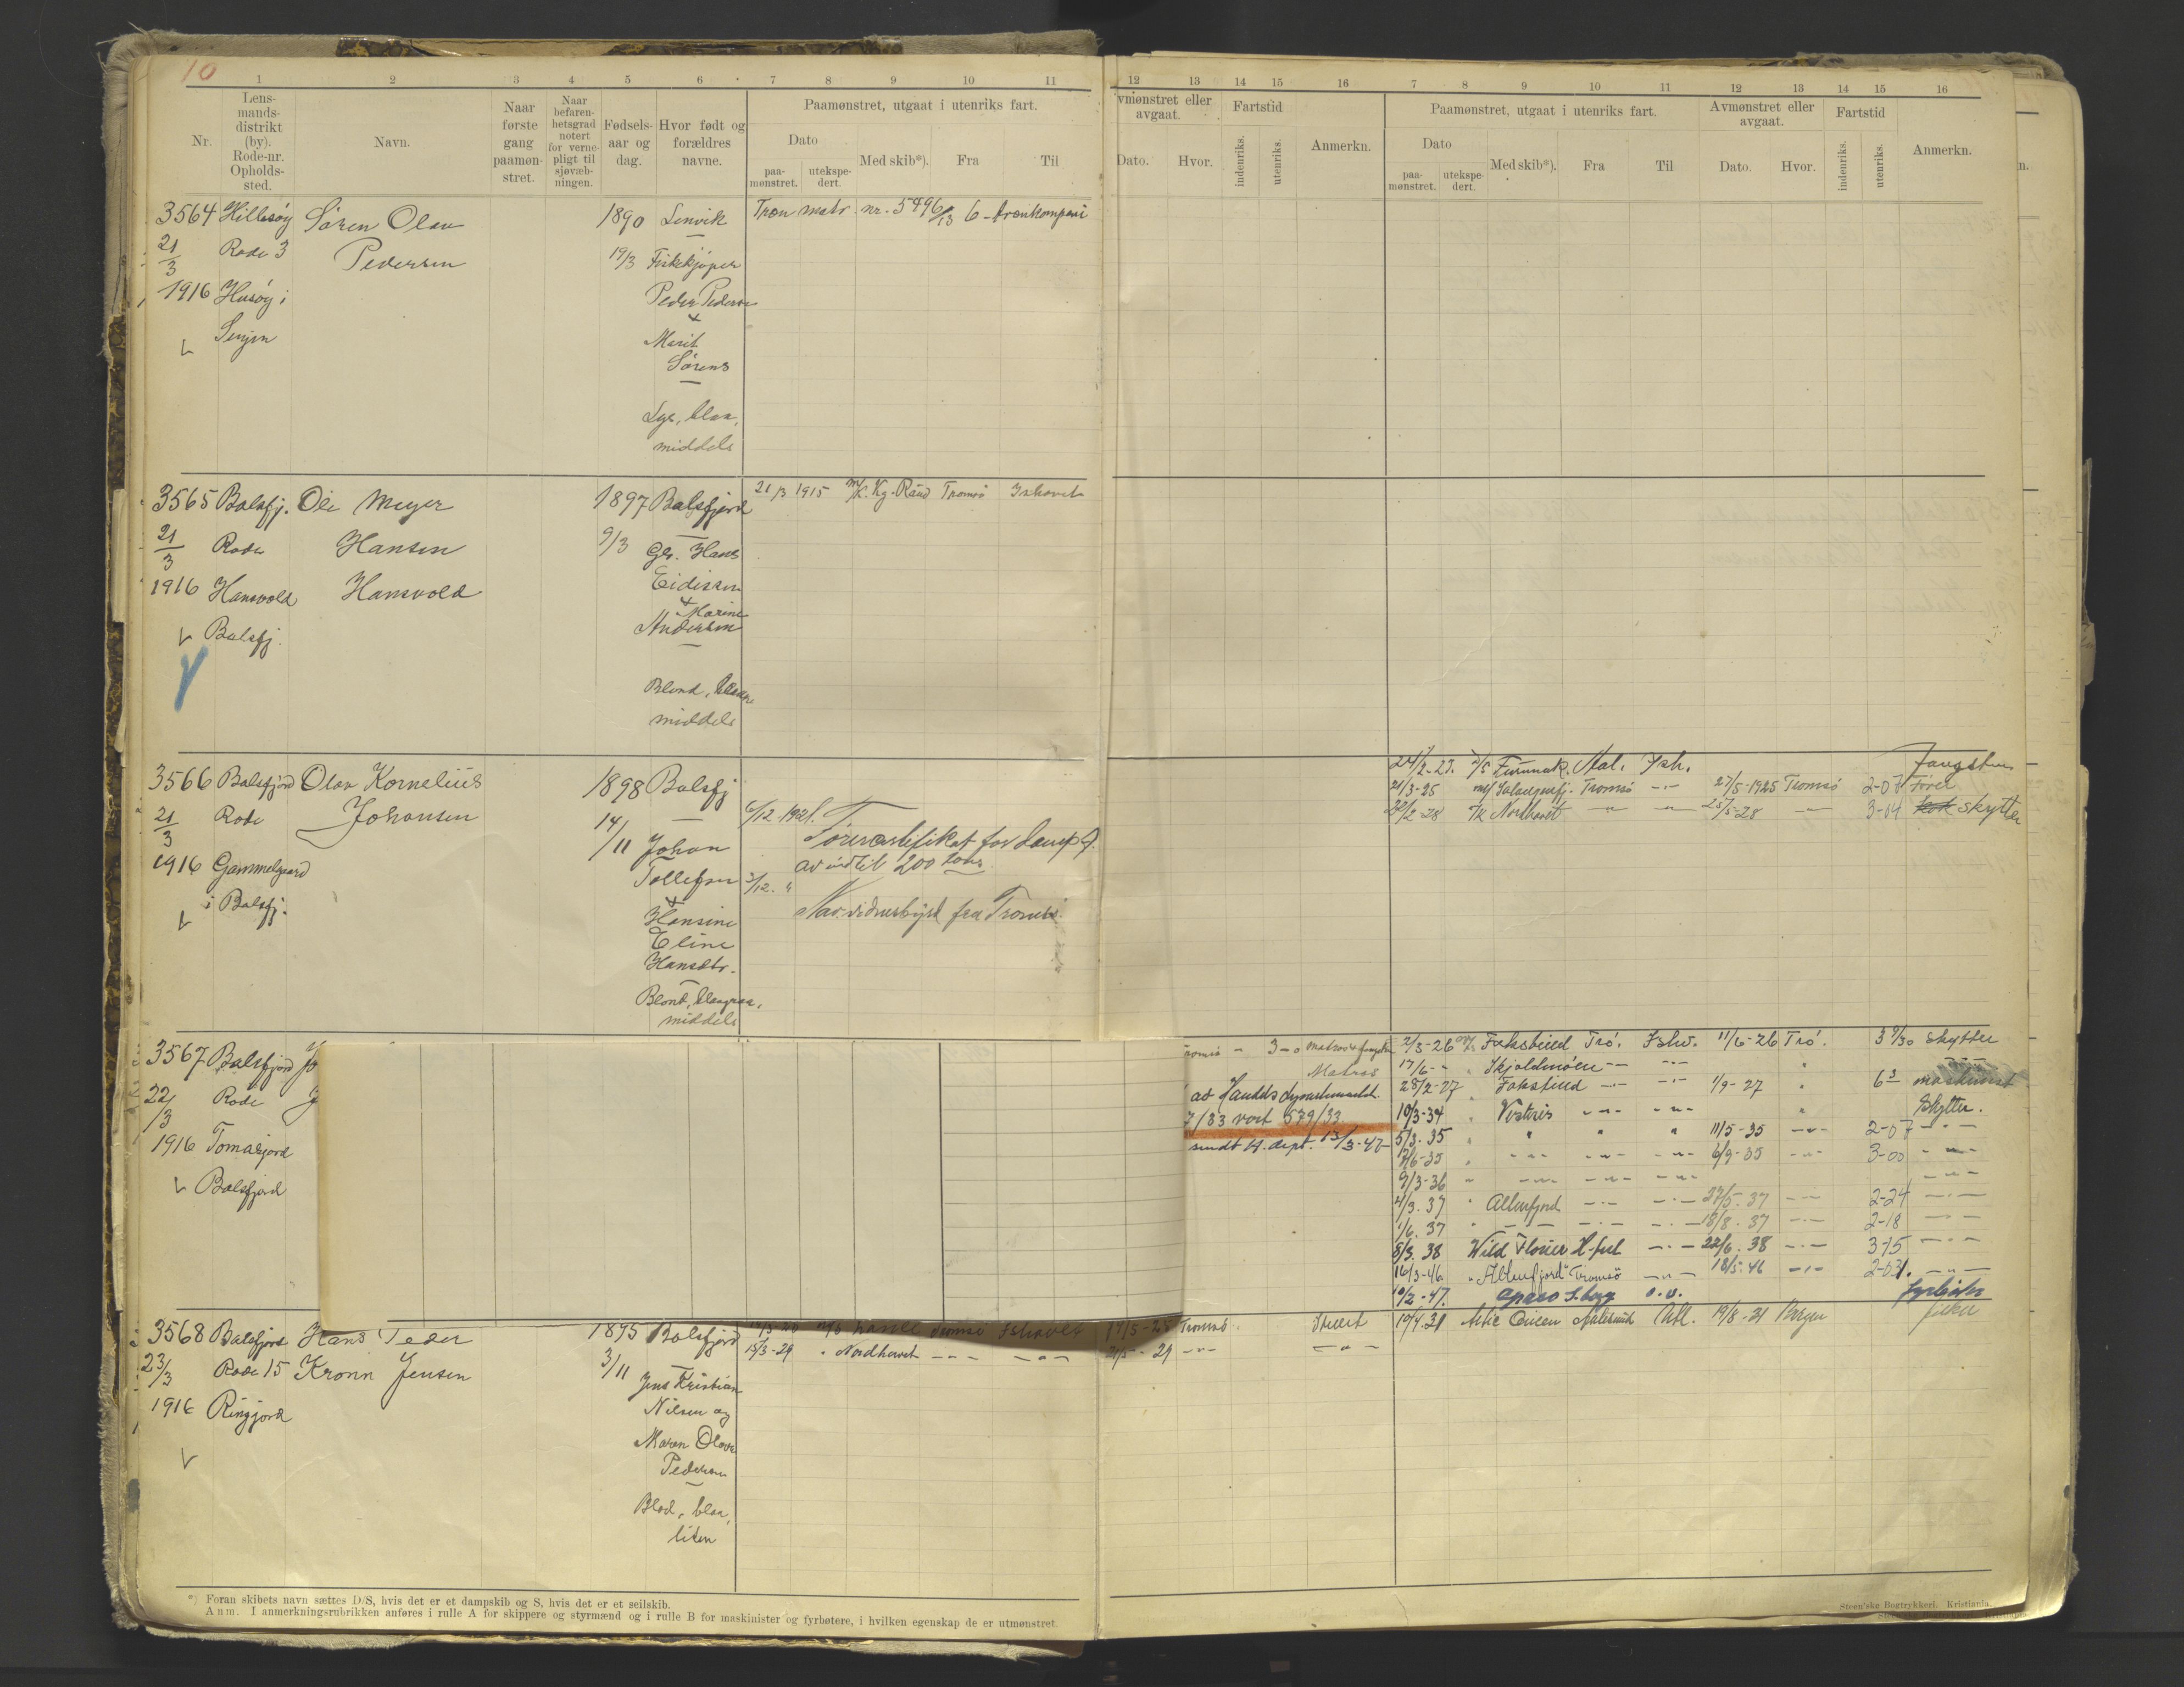 10
1 2 3 4 5 6 7 8 9 10 11
12 13 14 15 16 7 8 9 10 11 12 13 14 15 16
Nr.
Lens-
mands-
distrikt
(by).
Rode-nr.
Opholds-
sted.
Navn.
Naar
første
gang
paamøn-
stret.
Naar
befaren-
hetsgrad
notert
for verne-
pligt til
sjøvæb-
ningen.
Fødsels-
aar og
dag.
Hvor født og
forældres
navne.
Paamønstret, utgaat i utenriks fart.
Dato
paa-
mønstret.
utekspe-
dert.
Med skib*).
Fra
Til
vmønstret eller
avgaat.
Dato.
Hvor.
Fartstid
indenriks.
utenriks.
Anmerkn.
Paamønstret, utgaat i utenriks fart.
Dato
paa-
mønstret.
utekspe-
dert.
Med skib*).
Fra
Til
Avmønstret eller
avgaat.
Dato.
Hvor.
Fartstid
indenriks.
utenriks.
Anmerkn.
n.
3564 Hillesøy Søren Olav 1890 Lenvik
21/3 Rode 3 Pedersen 19/3 Fiskekjøper
1916 Husøy i Peder Pedersen
Senjen +
Marit
Sørens
Lys, blaa,
middels
Tron matr. nr. 5496/13 6-
3565 Balsfj. Ole Meyer 1897 Balsfjord 21/3 1915 M/K. Kg. Raud Tromsø Ishavet
21/3 Rode Hansen 9/3 Gbr. Hans
1916 Hamvold Hamvold Eidissen
Balsfj. + Marine
Andersen
Blond, blaa,
middels
3566 Balsfjord Olav Kornelius 1898 Balsfj
21/3 Rode Johansen 14/11 Johan
1916 Gammelgaard Tollefsen
i Balsfj. +
Hansine
Eline
Hansdtr.
Blond, blaagraa,
middels
6/12. 1921.
av indtil 200 tons
3/12. "
fra Tromsø.
24/2-23. Furunak. Aal. Ish. Fangstm
21/3-25 Tromsø -"- 27/5-1925 Tromsø 2-07 Fører
22/2-28 M/K Nordhavet -"- -"- 25/5-28 -"- 3-04 kok skytter
3567 Balsfjord
22/3 Rode
1916 Tomasjord
Balsfjord
romsø - 3-0
Matros
av Handelsdepartementet.
7/33 vort 579/33
sendt H. dept. 13/3-47
2/3-26 Fakstind Trø. Ishv. 11/6-26 Trø. 3 9/30 skytter
17/6-" Skjoldmøen -"- -"-
28/2-27 Fakstind -"- -"- 1/9-27 " 6 3 maskinist
10/3-34 Vesteris -"- -"- " Skytter.
5/3-35 " " " " 11/5-35 -"- 2-07 -"-
7/6-35 " -"- -"- -"- 6/9-35 -"- 3-00 -"-
9/3-36 " -"- -"- -"- -"-
4/3.37 " Altenfjord -"- -"- 27/5.37 -"- 2-24 -"-
1/6.37 " -"- -"- -"- 18/8.37 -"- 2-18 -"-
8/3.38 Wild Flower H-fest -"- 22/6.38 -"- 3-15 -"-
16/3-46 "Altenfjord" Tromsø -"- 18/5.46 -"- 2-03. -"-
10/2-47. S.berg o.v. fyrbøter
3568 Balsfjord Hans Peder 1895 Balsfjord
23/3 Rode 15 Kronn Jensen 3/11 Jens Kristian
1916 Ringjord Nilsen og
Maren Olava
Pedersen
Blod, blaa,
liten
Tromsø Ishavet 17/5-28 Tromsø
15/3-29 " Nordhavet -"- -"- 21/5-29 -"- -"-
10/4.31 Artic Queen Aalesund Atl. 19/8-31 Bergen fisker
*) Foran skibets navn sættes D/S, hvis det er et dampskib og S, hvis det er et seilskib.
Anm. I anmerkningsrubrikken anføres i rulle A for skippere og styrmænd og i rulle B for maskinister og fyrbøtere, i hvilken egenskap de er utmønstret.
Steen'ske Bogtrykkeri. Kristiania.